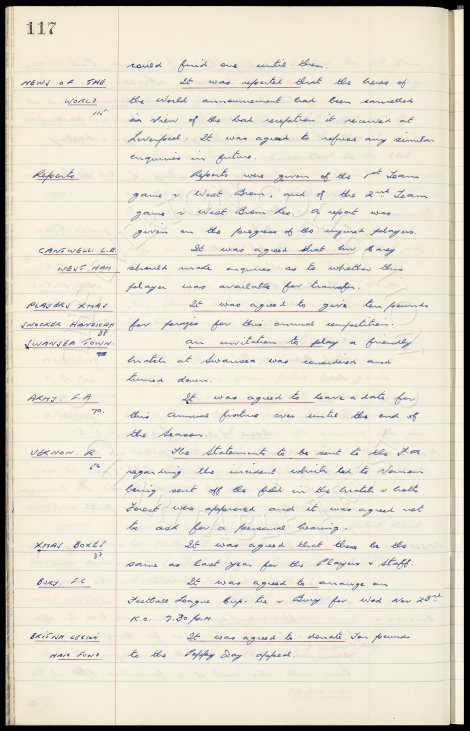 117
could find one until then.
NEWS OF THE It was reported that the News of
WORLD the World announcement had been cancelled
115 in view of the bad reception it received at
Liverpool. It was agreed to refuse any similar
enquiries in future.
Reports Reports were given of the 1st Team
game v West Brom, and of the 2nd Team
game v West Brom Res. A report was
given on the progress of the injured players.
CANTWELL. It was agreed that Mr Carey
WEST HAM should make enquiries as to whether this
player was available for transfer.
PLAYERS XMAS It was agreed to give ten pounds
SNOOKER HANDICAP for prizes for this annual competition.
SWANSEA TOWN. An invitation to play a friendly
match at Swansea was considered and
turned down.
ARMY. F.A It was agreed to leave a date for
70. this annual fixture over until the end of
the season.
VERNON. R The statements to be sent to the F.A
regarding the incident which led to Vernon
being sent off the field in the match v Notts
Forest were approved and it was agreed not
to ask for a personal hearing.
XMAS BOXES It was agreed that these be the
same as last year for the Players & Staff.
BURY. F.C It was agreed to arrange our
Football League Cup. tie v Bury for Wed Nov 23rd
K.O. 7.30 p.m.
BRITISH LEGION It was agreed to donate Ten pounds
HAIG FUND to the Poppy Day appeal.